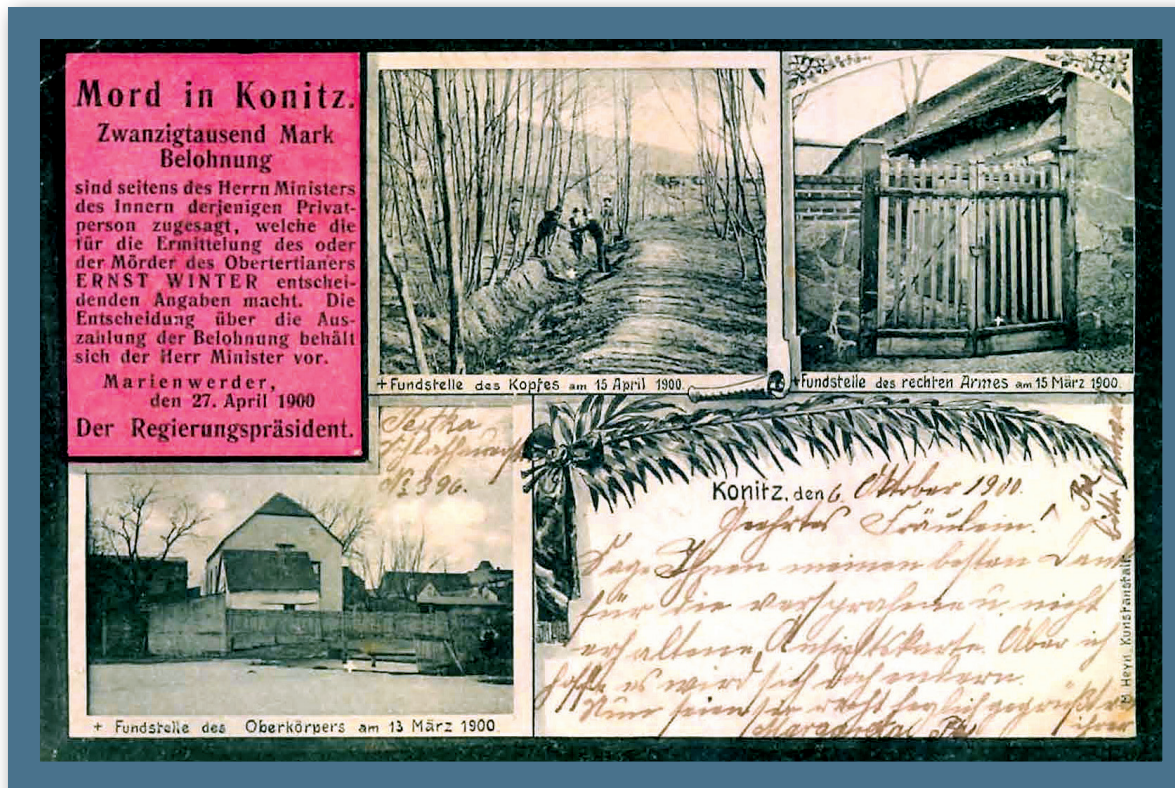 Mord in Konitz.
Zwanzigtausend Mark
Belohnung
sind seitens des Herrn Ministers
des Innern derjenigen Privat-
person zugesagt, welche die
für die Ermittelung des oder
der Mörder des Obertertianers
ERNST WINTER entschei-
denden Angaben macht. Die
Entscheidung über die Aus-
zahlung der Belohnung behält
sich der Herr Minister vor.
Marienwerder,
den 27. April 1900
Der Regierungspräsident.
+ Fundstelle des Kopfes am 15 April 1900.
+ Fundstelle des rechten Armes am 15 März 1900.
+ Fundstelle des Oberkörpers am 13 März 1900.
Konitz, den 6. Oktober 1900.
Geehrtes Fräulein!
Sage Ihnen meinen besten Dank
für die versprahne u. nicht
erhaltene Ansichtskarte. Aber ich
hoffe es wird sich doch endern.
Nun seien sie recht herzlich gegrüßt v.
ihrer
M. Heyn, Kunstanstalt